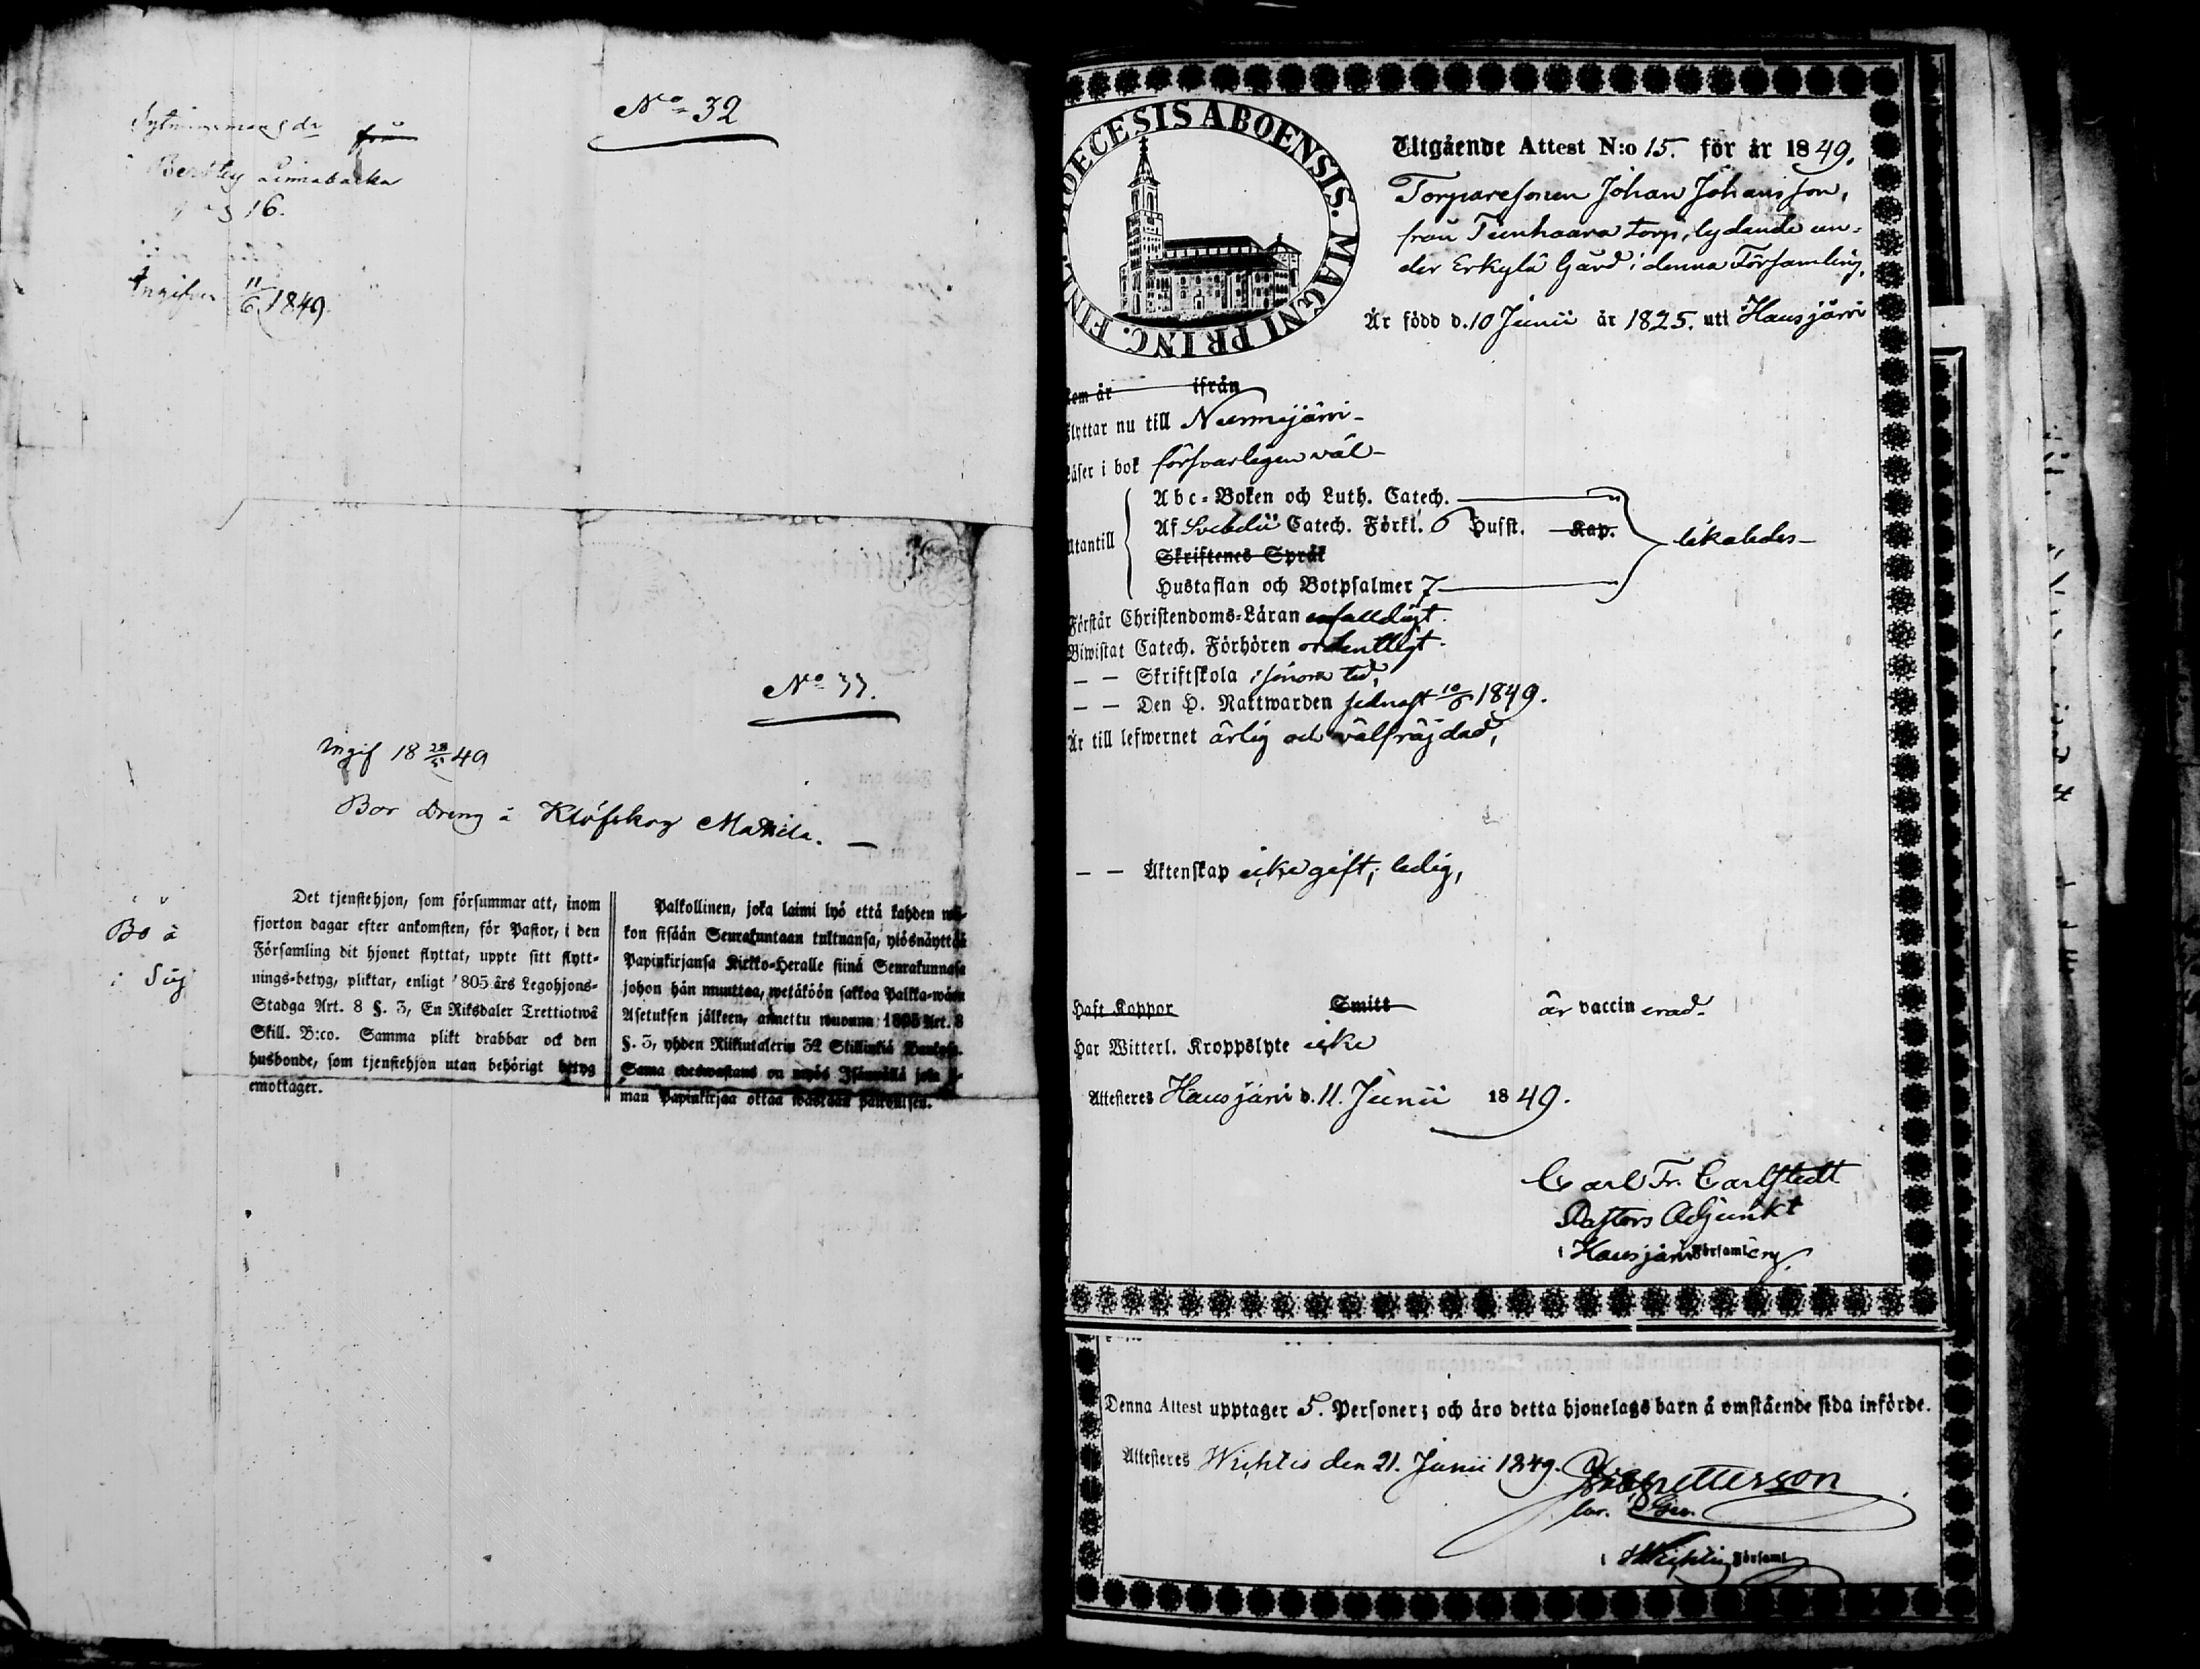 No 32
från
Linnabacka
pag 16.
Ingifven 11/6 1849.
No 33.
Ingif 18 28/5 49
Bor dreng å Klöfskog Mattila. —
Bo å
i
Det tjenstehjon, som försummar att, inom
fjorton dagar efter ankomsten, för Pastor, i den
Församling dit hjonet flyttat, uppte sitt flytt-
nings-betyg, pliktar, enligt 1805 års Legohjons-
Stadga Art. 8 §. 3, En Riksdaler Trettiotwå
Skill. B:co. Samma plikt drabbar ock den
husbonde, som tjenstehjon utan behörigt betyg
emottager.
Palkollinen, joka laimi lyö että kahden wii-
kon sisään Seurakuntaan tultuansa, ylösnäyttää
Papinkirjansa Kirkko-Heralle siinä Seurakunnasa
johon hän muuttaa, wetäköön sakkoa Palkka-wäen
Asetuksen jälkeen, annettu wuonna 1805 Art. 8
§. 3, yhden Riikintalerin 32 Skillinkiä
Sama edeswastaus on myös Isännällä joka il-
man Papinkirjaa ottaa wastaan palkollisen.
DIOECESIS ABOENSIS. MAGNI PRINC. FINL.
Utgående Attest N:o 15. för år 1849.
Torparesonen Johan Johansson,
från Tunhaara torp, lydande un-
der Erkylä Gård i denna Församling,
Är född d. 10 Junii år 1825. uti Hausjärvi
Kom år ifrån
Flyttar nu till Nurmijärvi-
Läser i bok försvarligen väl-
Abc-Boken och Luth. Catech.
Utantill Af Svebelii Catech. Förkl. 6 Hufst. Kap. likaledes-
Skriftenes Språk
Hustaflan och Botpsalmer 7
Förstår Christendoms-Läran enfalldigt.
Biwistat Catech. Förhören ordentligt.
— — Skriftskola i sinom tid,
— — Den H. Nattwarden sednast 10/6 1849.
Är till lefwernet ärlig och välfräjdad,
— — Äktenskap icke gift, ledig,
Haft Koppor Smitt är vaccinerad.
Har Witterl. Kroppslyte icke
Attesteres Hausjärvi d. 11. Junii 1849.
Carl Fr. Carlstedt
Pastors Adjunkt
i Hausjärvi Församling.
Denna Attest upptager 5. Personer; och äro detta hjonelags barn å omstående sida införde.
Attesteres Wichtis den 21. Junii 1849.
i Wichtis Församl